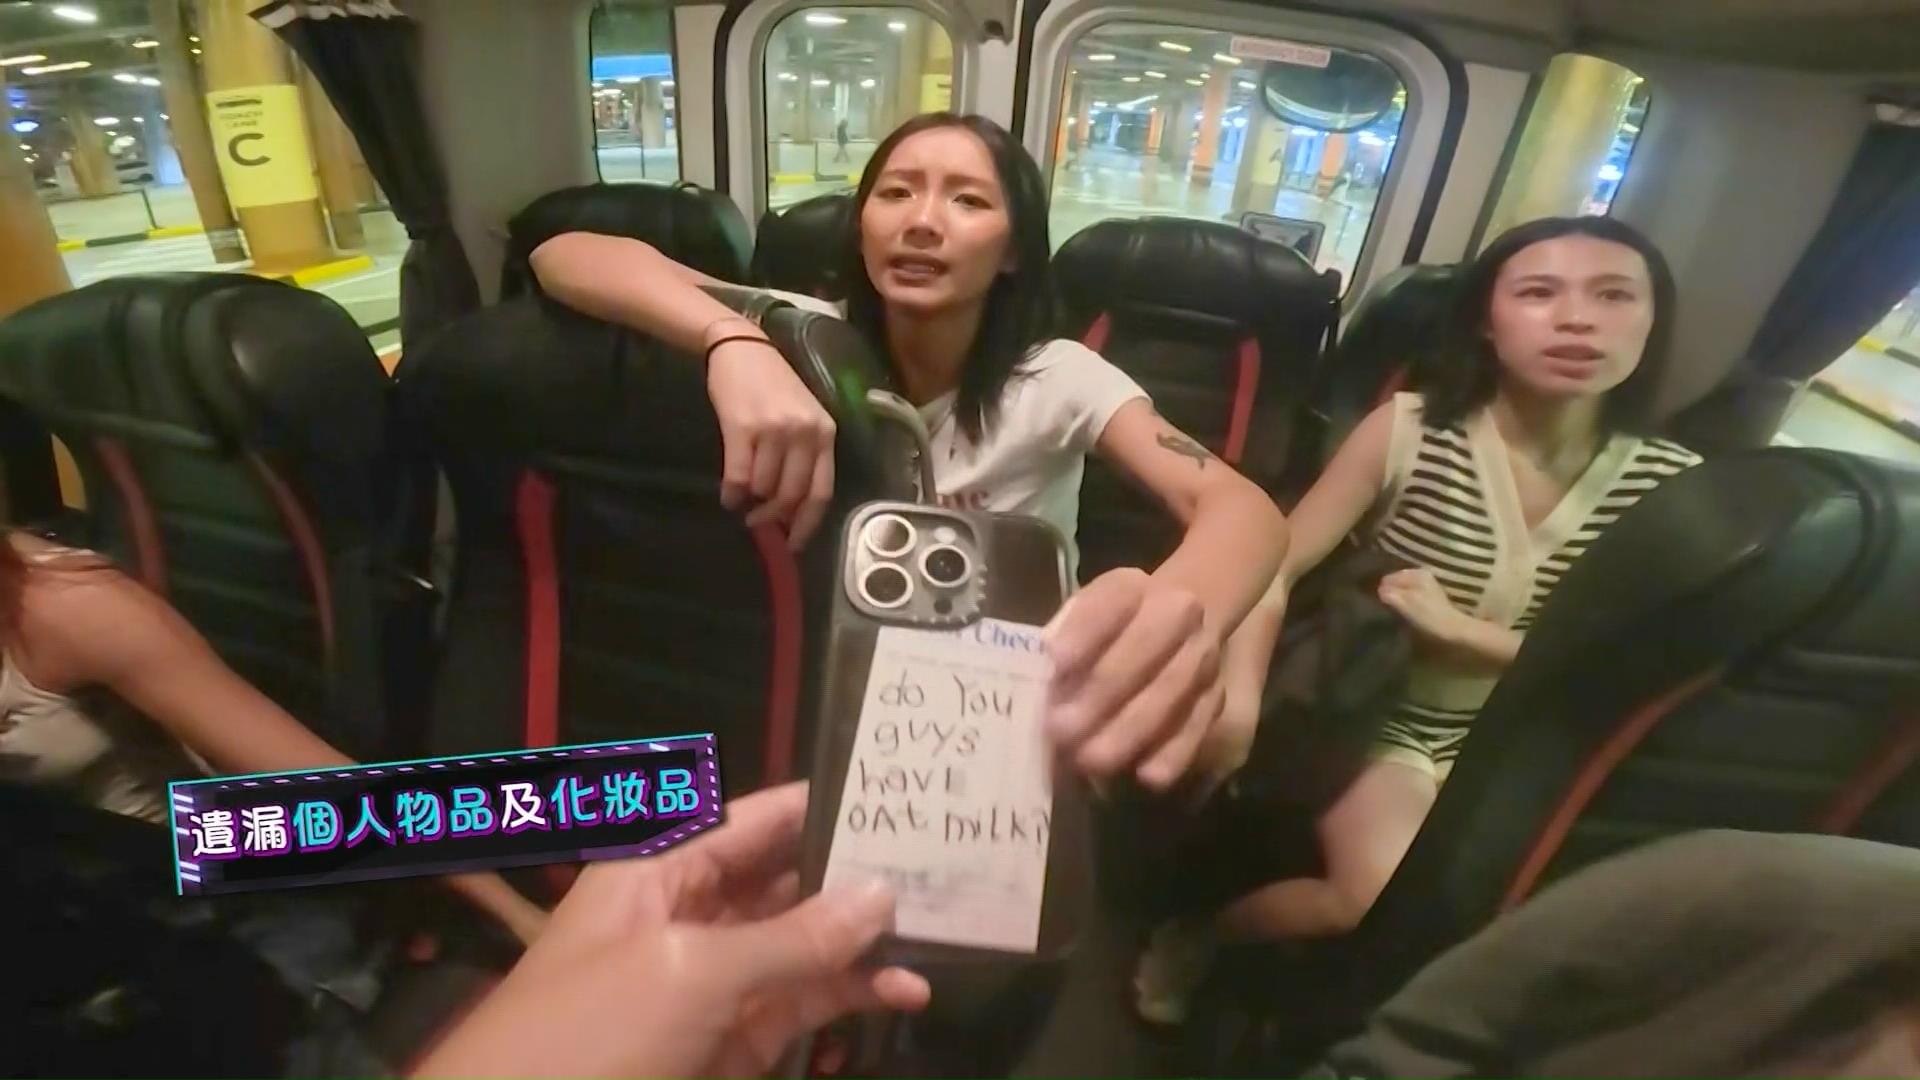 COACH
LANE
C
EMERGENCY DOOR
Check
do You
guys
have
OAt milk?
遺漏個人物品及化妝品